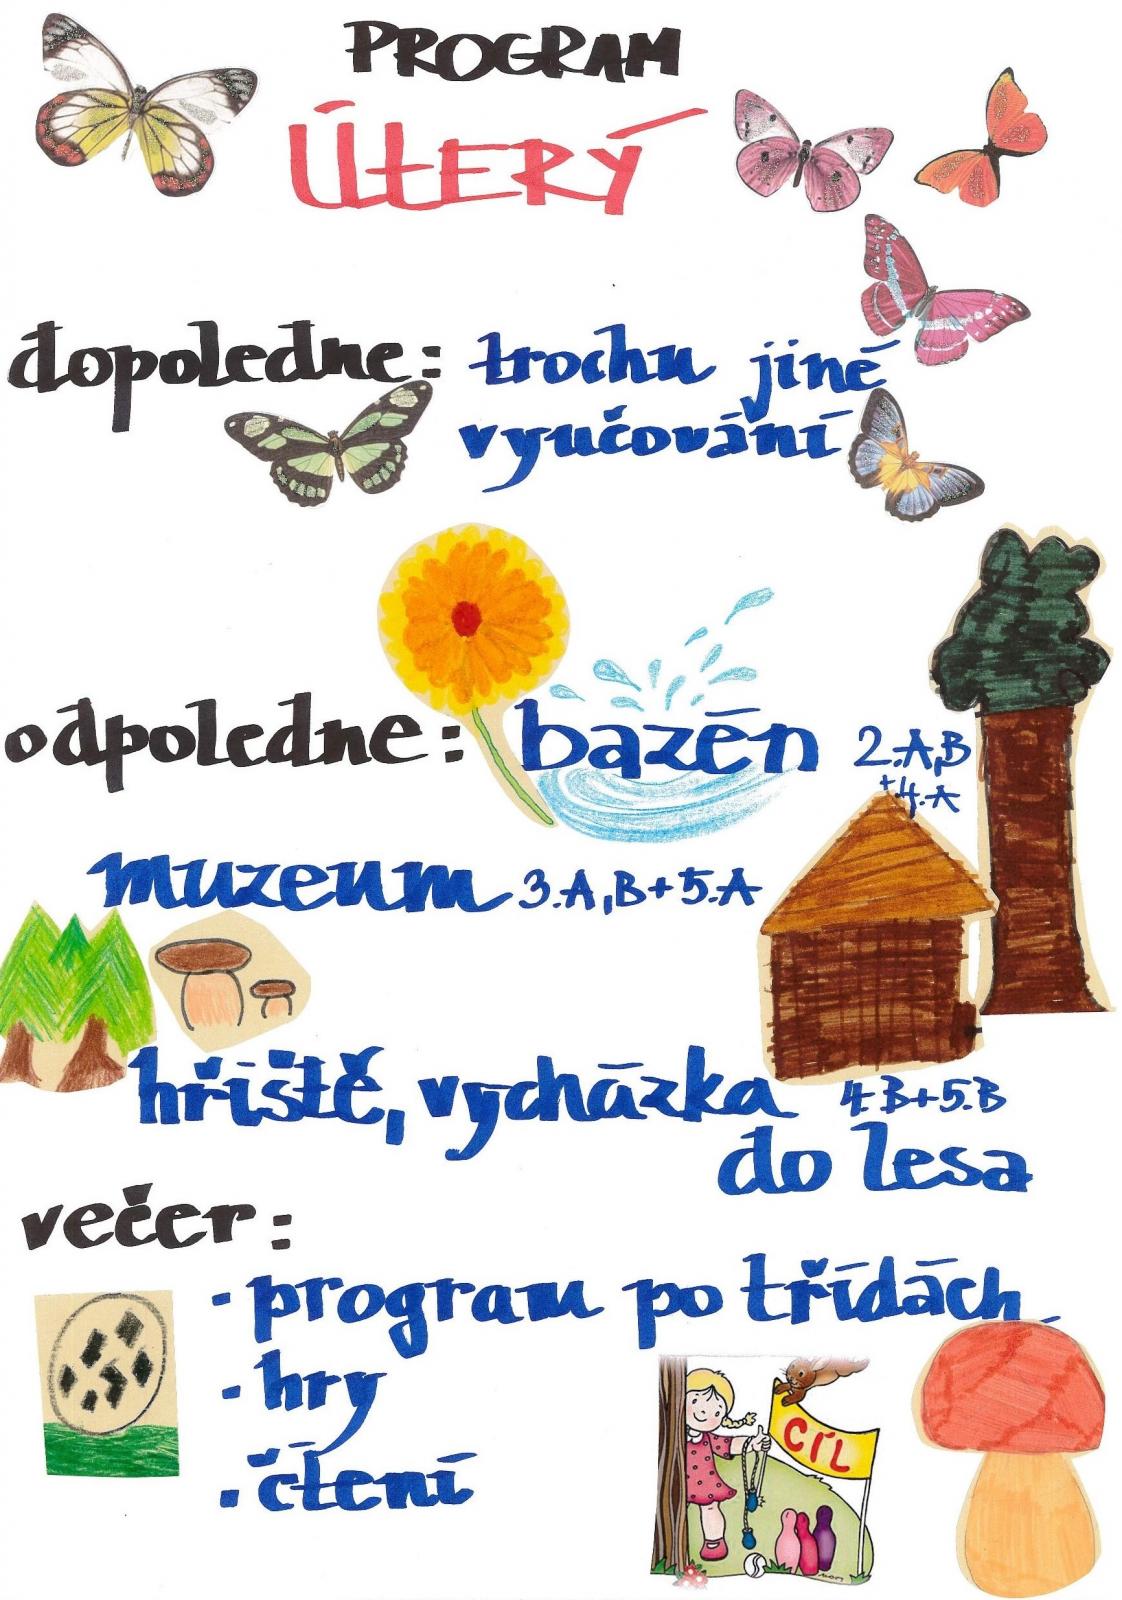 PROGRAM
ÚTERÝ
dopoledne: trochu jiné
vyučování
odpoledne: bazén 2.A,B
+4.A
muzeum 3.A,B+5.A
hřiště, vycházka 4.B+5.B
do lesa
večer:
- program po třídách
- hry
- čtení
CÍL